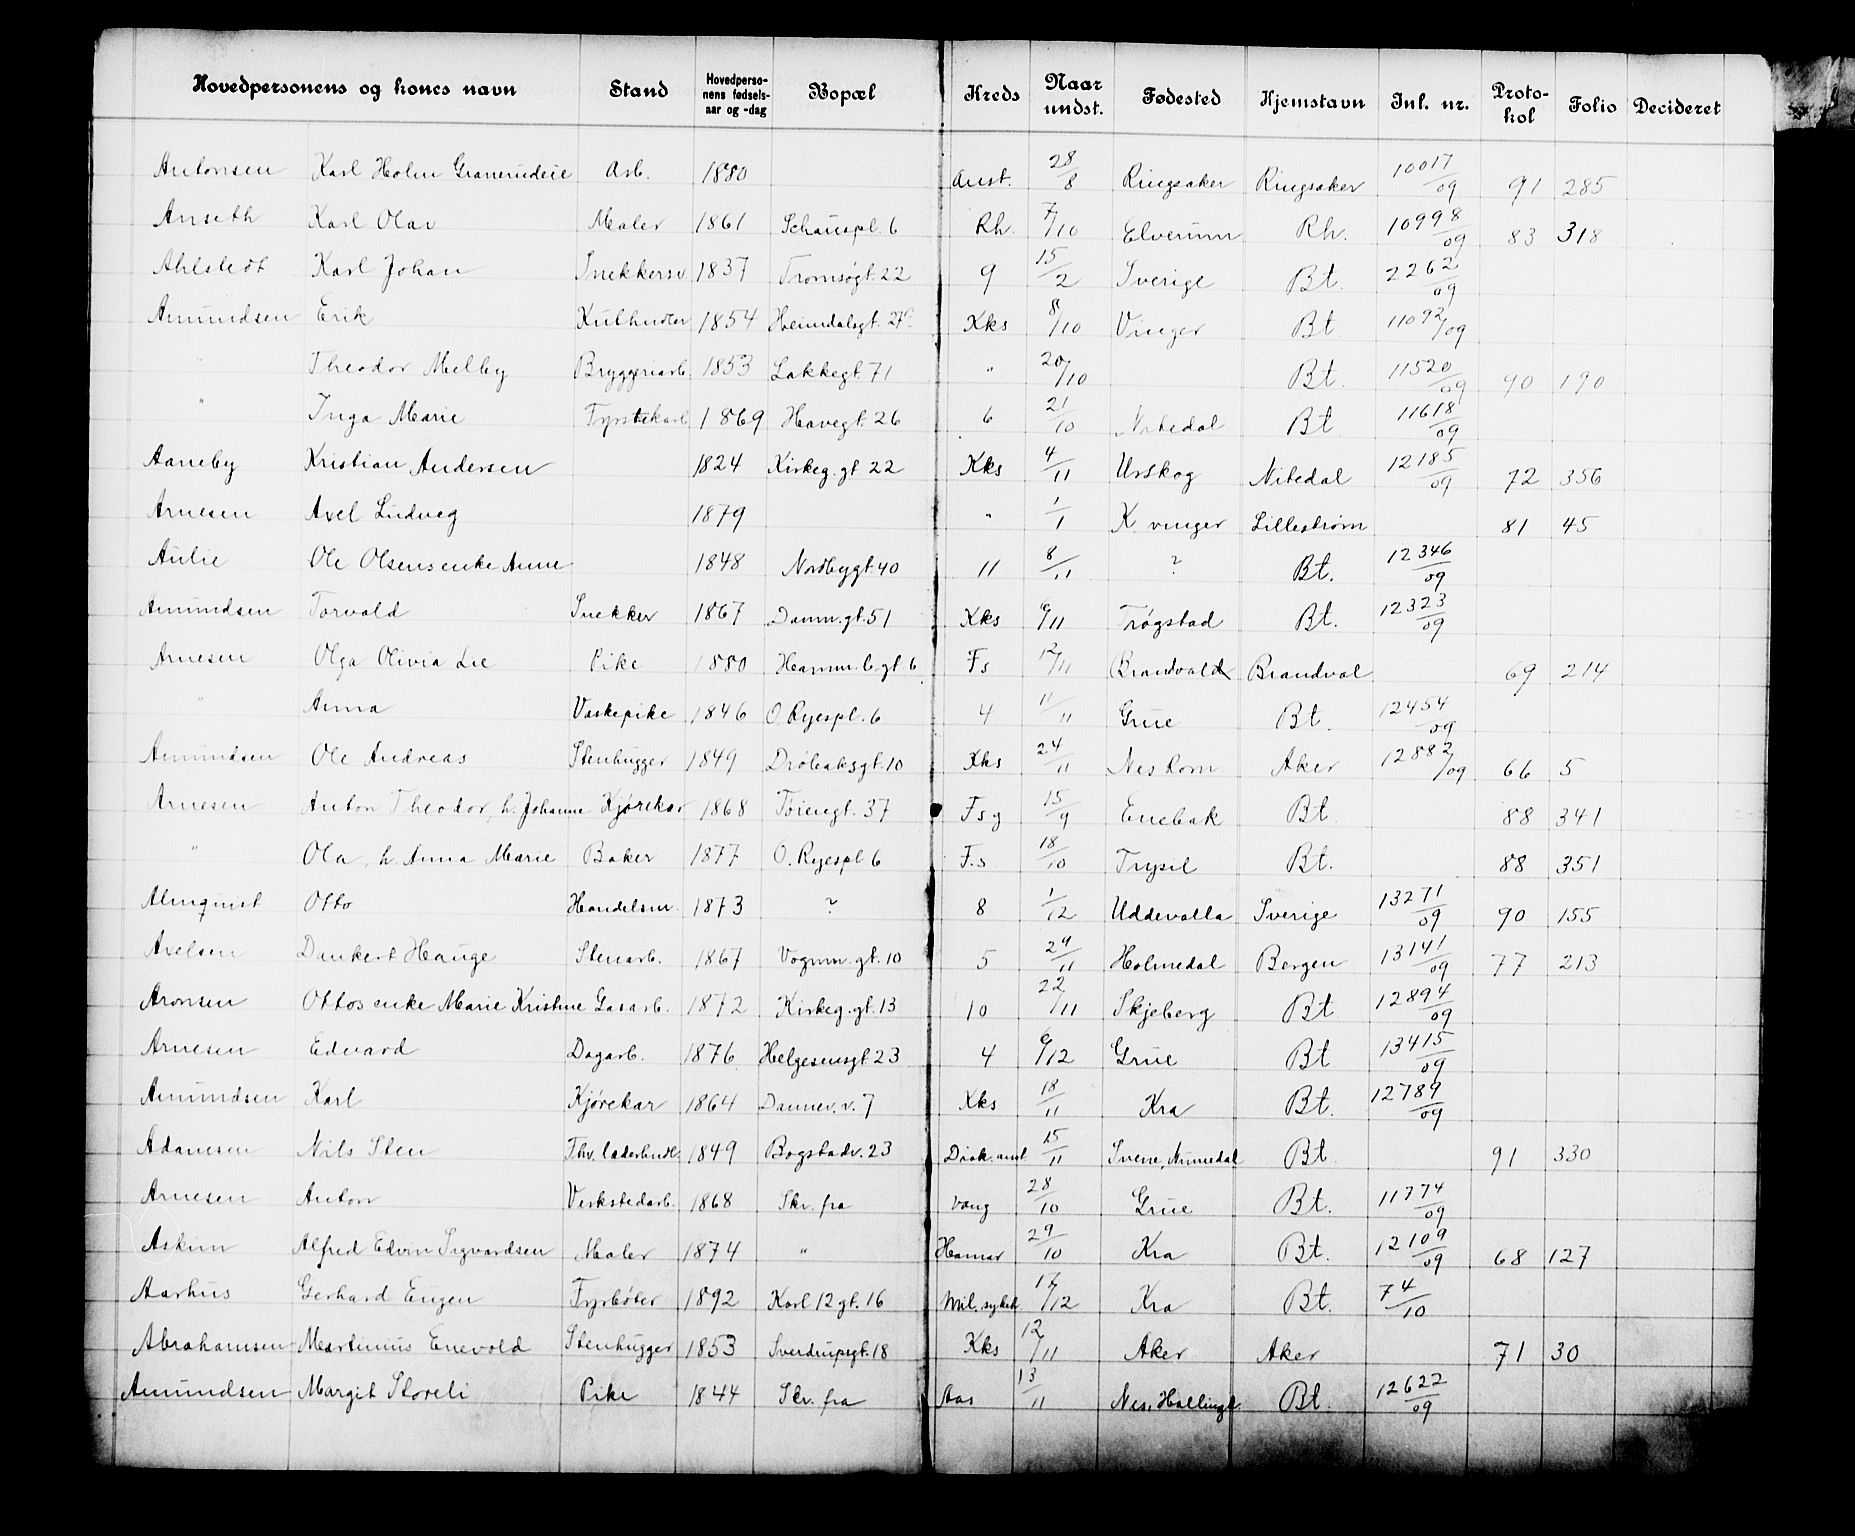 Hovedpersonens og kones navn Stand Hovedpersonens fødselsaar og -dag Bopæl Kreds Naar undst. Fødested Hjemstavn Inl. nr. Protokol Folio Decideret
Antonsen Karl Holm Arb. 1880 Anst. 28/8 Ringsaker Ringsaker 10017/09 91 285
Anseth Karl Olav Maler 1861 Schouspl. 6 Rh. 7/10 Elverum Rh. 10998/09 83 318
Ahlstedt Karl Johan Snekkersv 1837 Tromsøgt. 22 9 15/2 Sverige Bt. 2262/09
Amundsen Erik Kulhndler 1854 Heimdalsgt. Kks 8/10 Vinger Bt. 11092/09
" Theodor Melby Bryggeriarb. 1853 Lakkegt. 71 " 20/10 Bt. 11520/09 90 190
" Inga Marie Fyrstikarb 1869 Havegt. 26 6 21/10 Nitedal Bt 11618/09
Aaneby Kristian Andersen 1824 Kirkeg. gt 22 Kks 4/11 Urskog Nitedal 12185/09 72 356
Arnesen Axel Ludvig 1879 " 1/1 K.vinger Lillestrøm 81 45
Aulie Ole Olsens enke Anne 1848 Nordbygt. 40 11 8/11 ? Bt. 12346/09
Amundsen Torvald Snekker 1867 Danm.gt. 51 Kks 6/11 Trøgstad Bt. 12323/09
Arnesen Olga Olivia Lie Pike 1880 Hamm.b.gt. 6 Fs 12/11 Brandvald Brandval 69 214
" Anna Vaskepike 1846 O. Ryespl. 6 4 11/11 Grue Bt. 12454/09
Amundsen Ole Andreas Stenhugger 1849 Drøbaksgt. 10 Kks 24/11 Nes Rom Aker 12882/09 66 5
Arnesen Anton Theodor, h. Johanne Kjørekar 1868 Tøiengt. 37 Fsg 15/9 Enebak Bt. 88 341
" Ola, h. Anna Marie Baker 1877 O. Ryespl 6 F.s 18/10 Trysil Bt. 88 351
Almquist Otto Handelsm. 1873 ? 8 1/12 Uddevalla Sverige 13271/09 90 155
Axelsen Dankert Hauge Stenarb. 1867 Vognm.gt. 10 5 29/11 Holmedal Bergen 13141/09 77 213
Aronsen Ottos enke Marie Kristine Gasarb. 1872 Kirkeg.gt. 13 10 22/11 Skjeberg Bt 12894/09
Arnesen Edvard Dagarb. 1876 Helgesensgt. 23 4 6/12 Grue Bt 13415/09
Amundsen Karl Kjørekar 1864 Dannev.v. 7 Kks 18/11 Kra Bt. 12789/09
Adamsen Nils Sten Fhv. læderhndl. 1849 Bogstadv. 23 Diak.anst 15/11 Svene, Numedal Bt. 91 330
Arnesen Anton Verkstedarb. 1868 Skr. fra Vang 28/10 Grue Bt. 11774/09
Askim Alfred Edvin Sigvardsen Maler 1874 " Hamar 29/10 Kra Bt. 12109/09 68 127
Aarhus Gerhard Eugen Fyrbøter 1892 Karl 12 gt. 16 Mil. sykeh 17/12 Kra Bt. 74/10
Abrahamsen Martinius Enevold Stenhugger 1853 Sverdrupsgt. 18 Kks 12/11 Aker Aker 71 30
Amundsen Margit Storeli Pike 1844 Skr. fra Aas 13/11 Nes, Hallingd. Bt. 12622/09